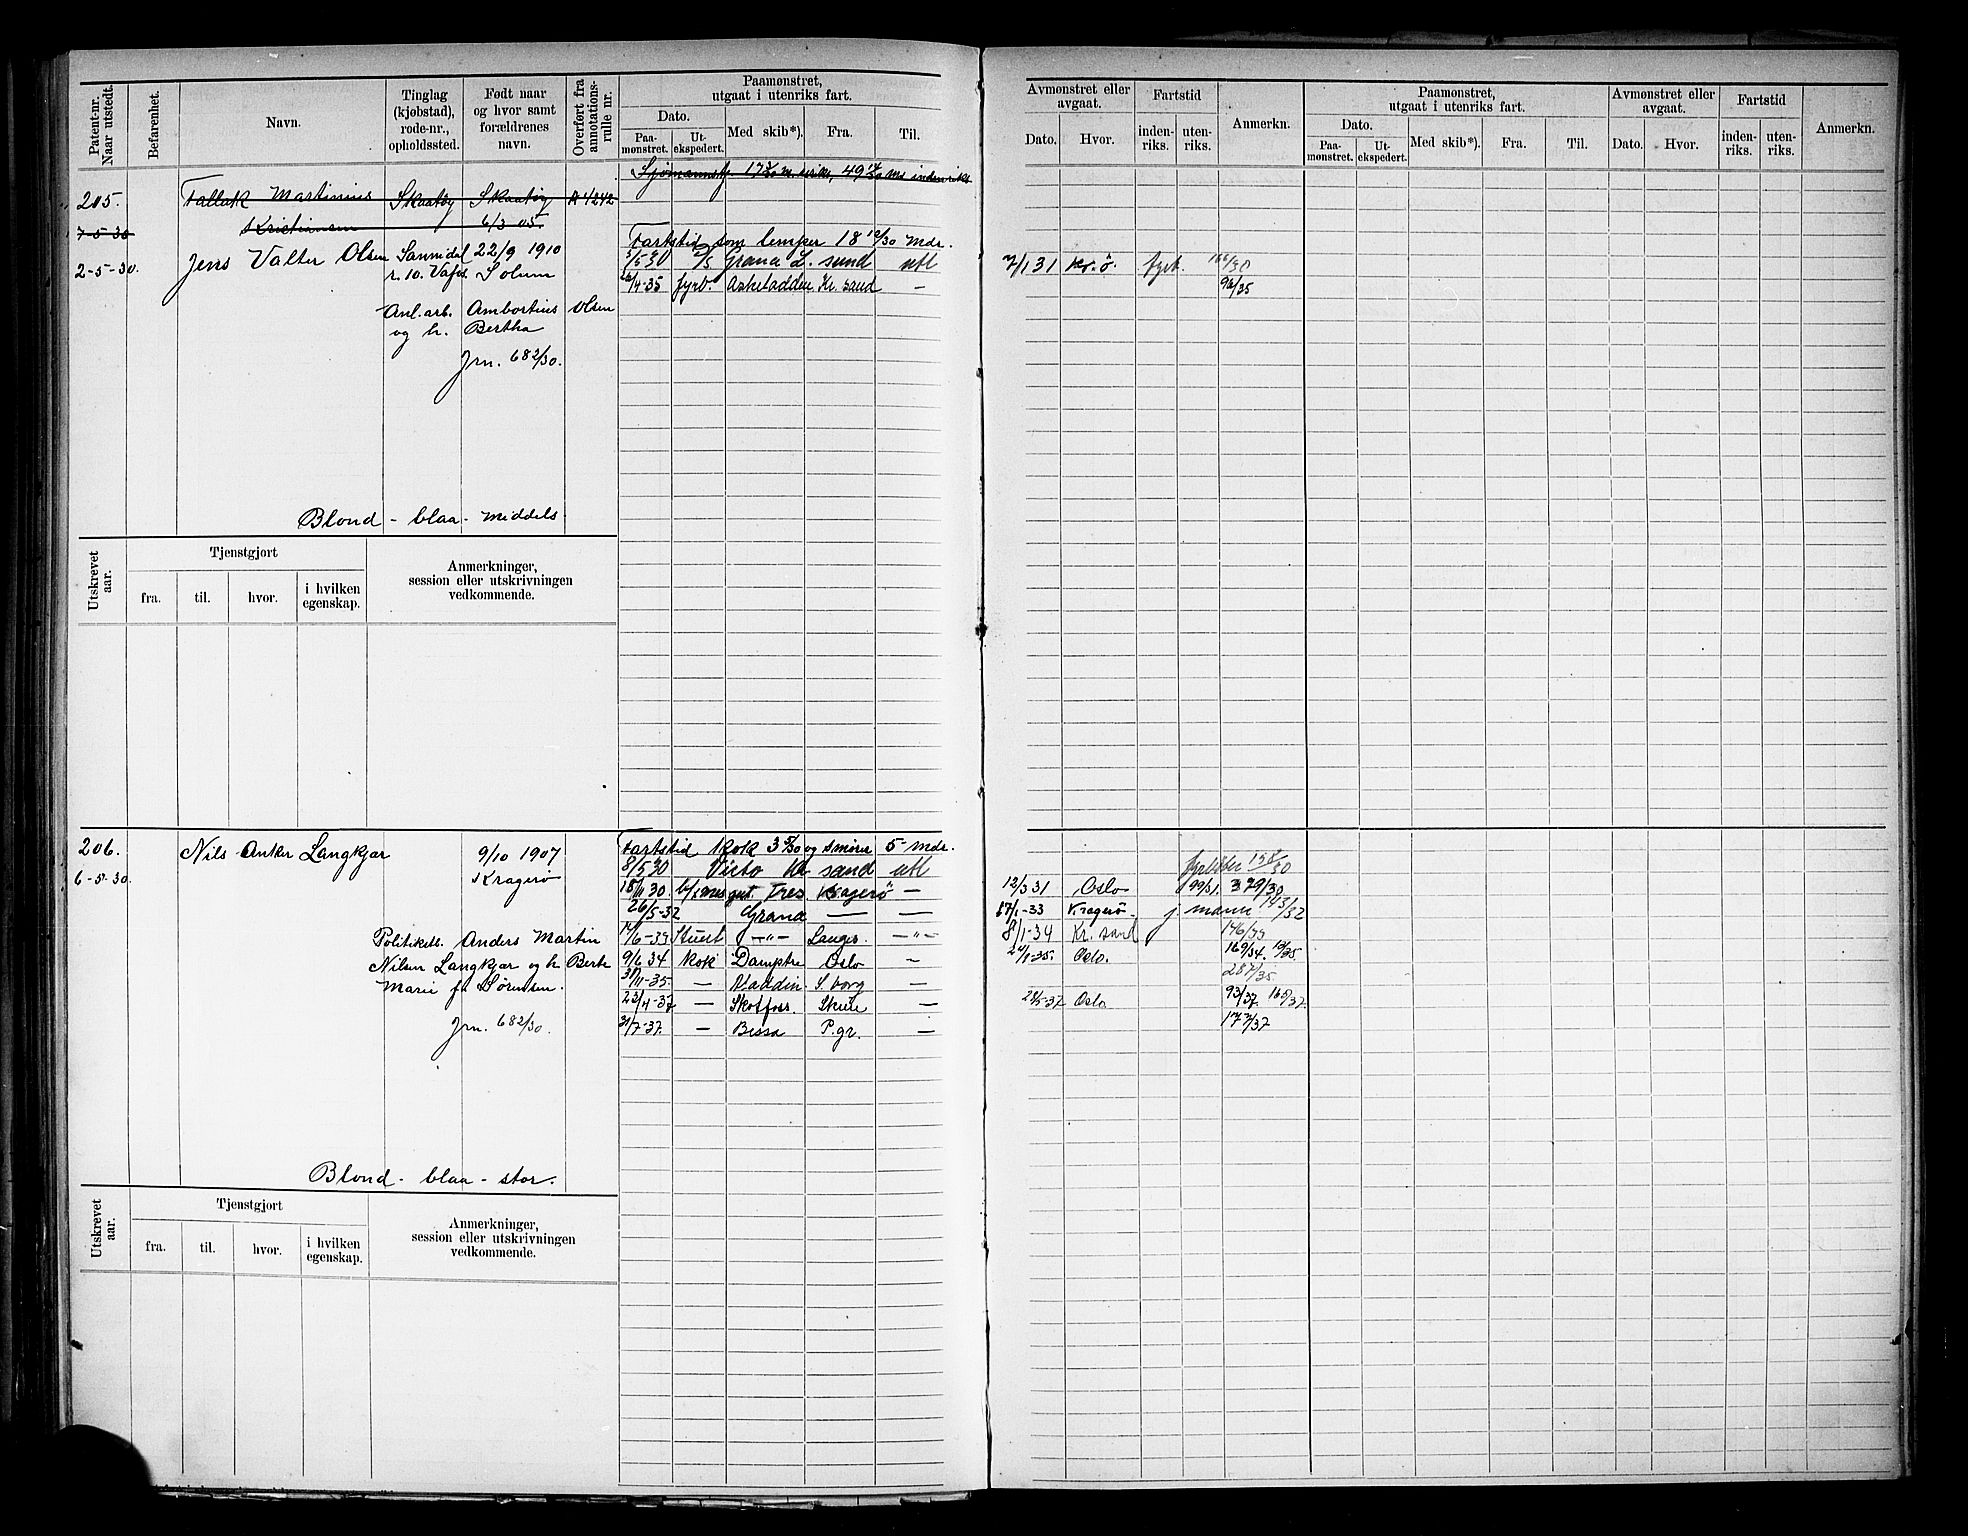 Patent-nr. Naar utstedt.
Befarenhet.
Navn.
Tinglag (kjøbstad), rode-nr., opholdssted.
Født naar og hvor samt forældrenes navn.
Overført fra annotations-rulle nr.
Paamønstret, utgaat i utenriks fart.
Dato.
Paa-mønstret.
Ut-ekspedert.
Med skib*).
Fra.
Til.
205.
Tallak Martinius Skaatøy Skaatøy A 4242
7-5-30 Kristiansen 6/3 05
Fartstid som lemper 18 12/30 mdr.
2-5-30. Jens Valter Olsen Sannidal 22/9 1910
r. 10. Solum
5/5 30 Grana L. sund utl
/4-35 fyrb. Askeladden Kr. sand —
Anl. arb. Ambortius Olsen
og h. Bertha
Jrn. 682/30.
Blond - blaa - middels.
Utskrevet aar.
Tjenstgjort
fra. til. hvor. i hvilken egenskap.
Anmerkninger, session eller utskrivningen vedkommende.
206. Nils Anker Langkjær 9/10 1907
6-5-30. Kragerø
Fartstid kok 3 5/30 og smører 5 mdr.
8/5 30 Victo Kr sand utl
18/11 30 Tres Kragerö —
26/5-32 Grana — —
/6-33 Stuert —"— Langes. —"—
9/6 34 kok Dampen Oslo —
30/11-35. — Vardin S. borg —
23/4-37 — Skotfoss. Skien —
31/7-37. — Bessa P.gr. —
Politikstb. Anders Martin
Nilsen Langkjær og h. Berte
Marie f. Sørensen.
Jrn. 682/30.
Blond - blaa - stor.
Utskrevet aar.
Tjenstgjort
fra. til. hvor. i hvilken egenskap.
Anmerkninger, session eller utskrivningen vedkommende.
Avmønstret eller avgaat.
Dato. Hvor.
Fartstid
inden-riks. uten-riks.
Anmerkn.
Paamønstret, utgaat i utenriks fart.
Dato.
Paa-mønstret. Ut-ekspedert. Med skib*). Fra. Til.
Avmønstret eller avgaat.
Dato. Hvor.
Fartstid
inden-riks. uten-riks.
Anmerkn.
7/1 31 Kr. ö. fyrb. 166/30
96/35
fyrböter 158/30
12/3 31 Oslo 99/31. 379/30
17/1-33 Kragerö. j. mann 143/32
8/1-34 Kr. sand 146/33
24/1-35. Oslo. 169/34. 13/35
287/35
28/5-37 Oslo 93/37. 165/37.
177/37